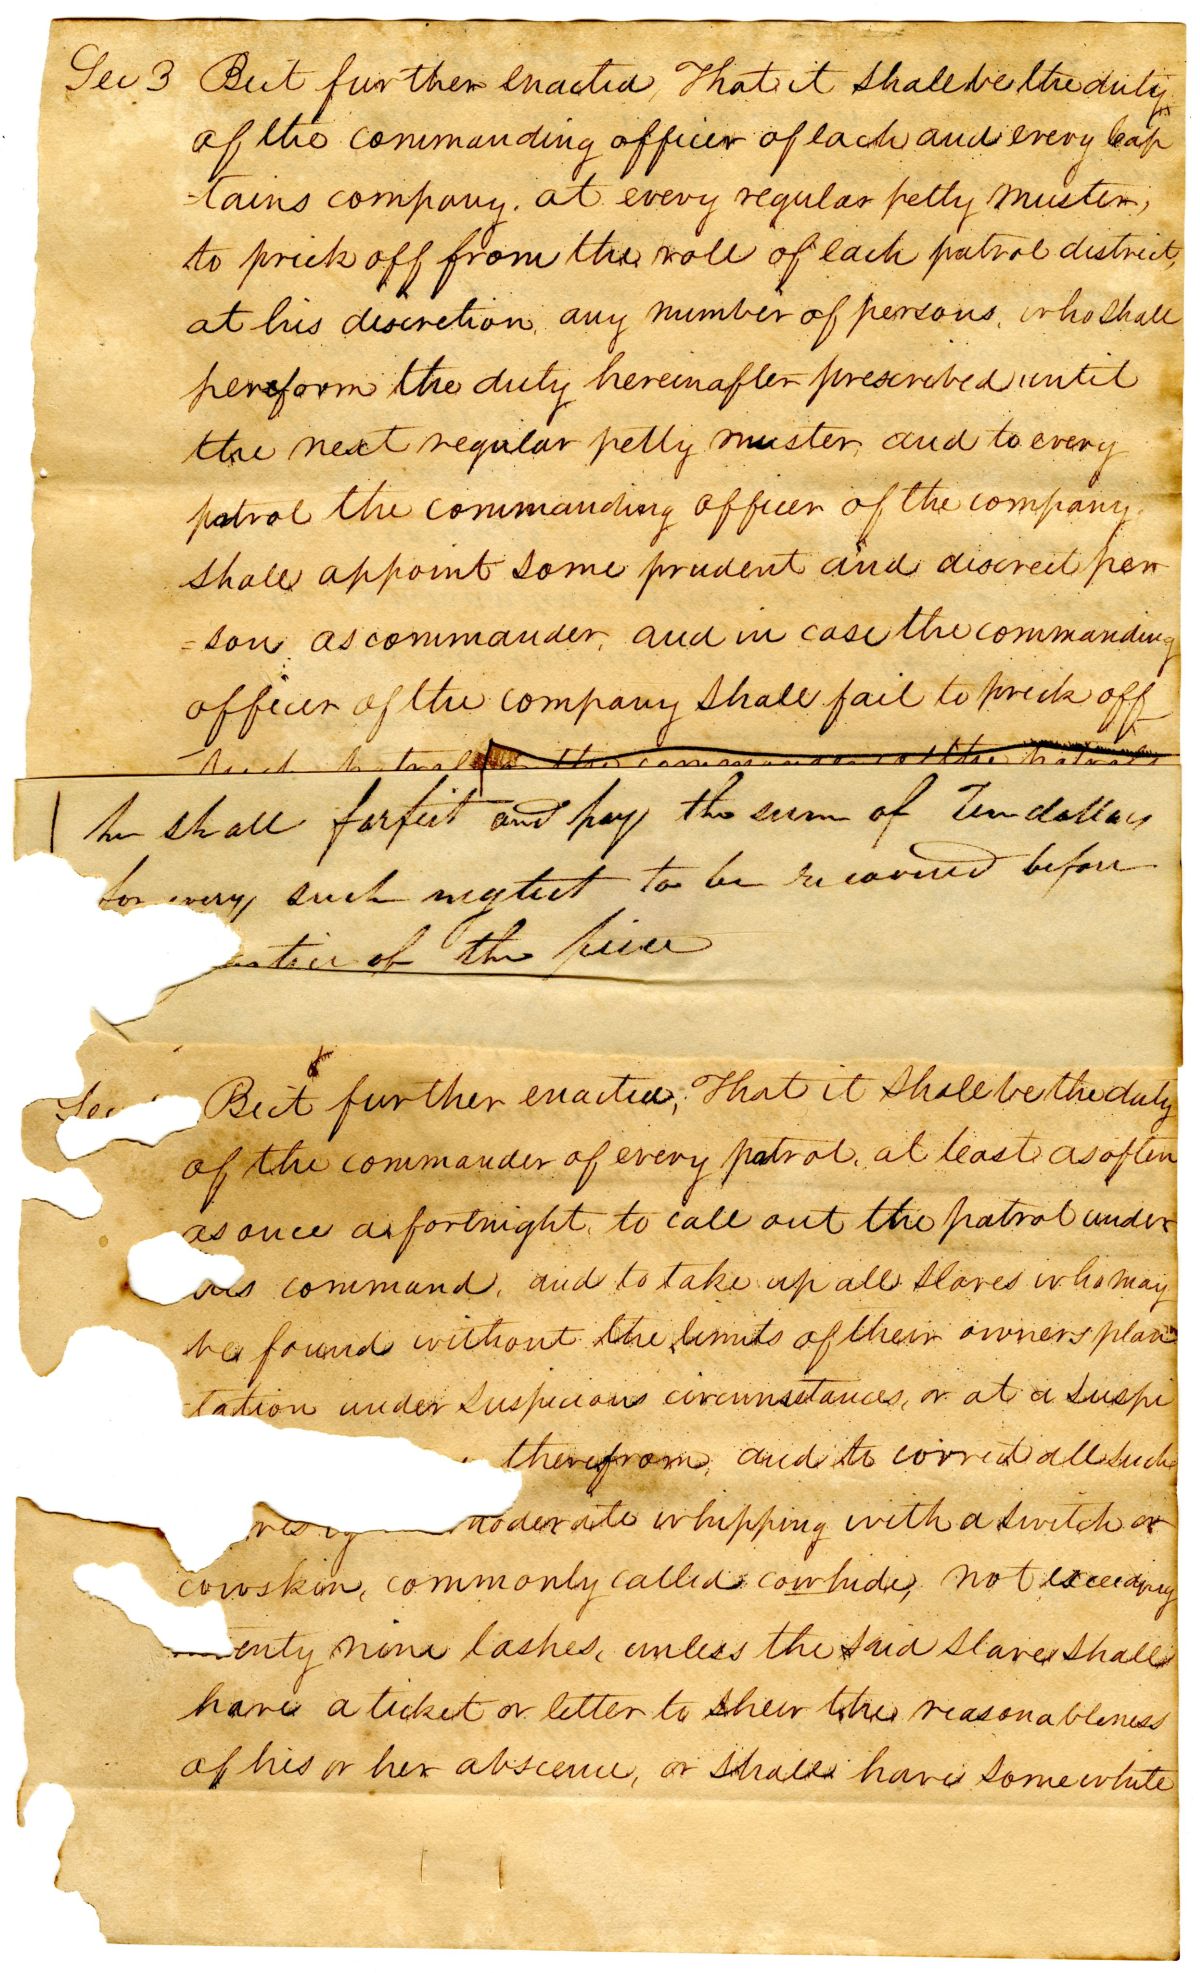 Sec 3 Be it further enacted, That it shall be the duty
of the commanding officer of each and every cap
-tains company, at every regular petty muster,
to prick off from the role of each patrol district,
at his discretion, any number of persons, who shall
pereform the duty hereinafter prescribed until
the next regular petty muster, and to every
patrol the commanding officer of the company
shall appoint some prudent and discreet per
=son as commander, and in case the commanding
officer of the company shall fail to prick off
such patrol or the commander of the patrols
he shall forfeit and pay the sum of Ten dollars
for every such neglect to be recovered before
of the peice
Sec Be it further enacted, That it shall be the duty
of the commander of every patrol, at least as often
as once a fortnight, to call out the patrol under
his command, and to take up all slaves who may
be found without the limits of their owners plan
tation under suspicious circumstances, or at a suspi
therefrom, and to correct all such
moderate whipping with a switch or
cowskin, commonly called cowhide, not exceeding
nine lashes, unless the said slave shall
have a ticket or letter to shew the reasonableness
of his or her abscence, or shall have some white